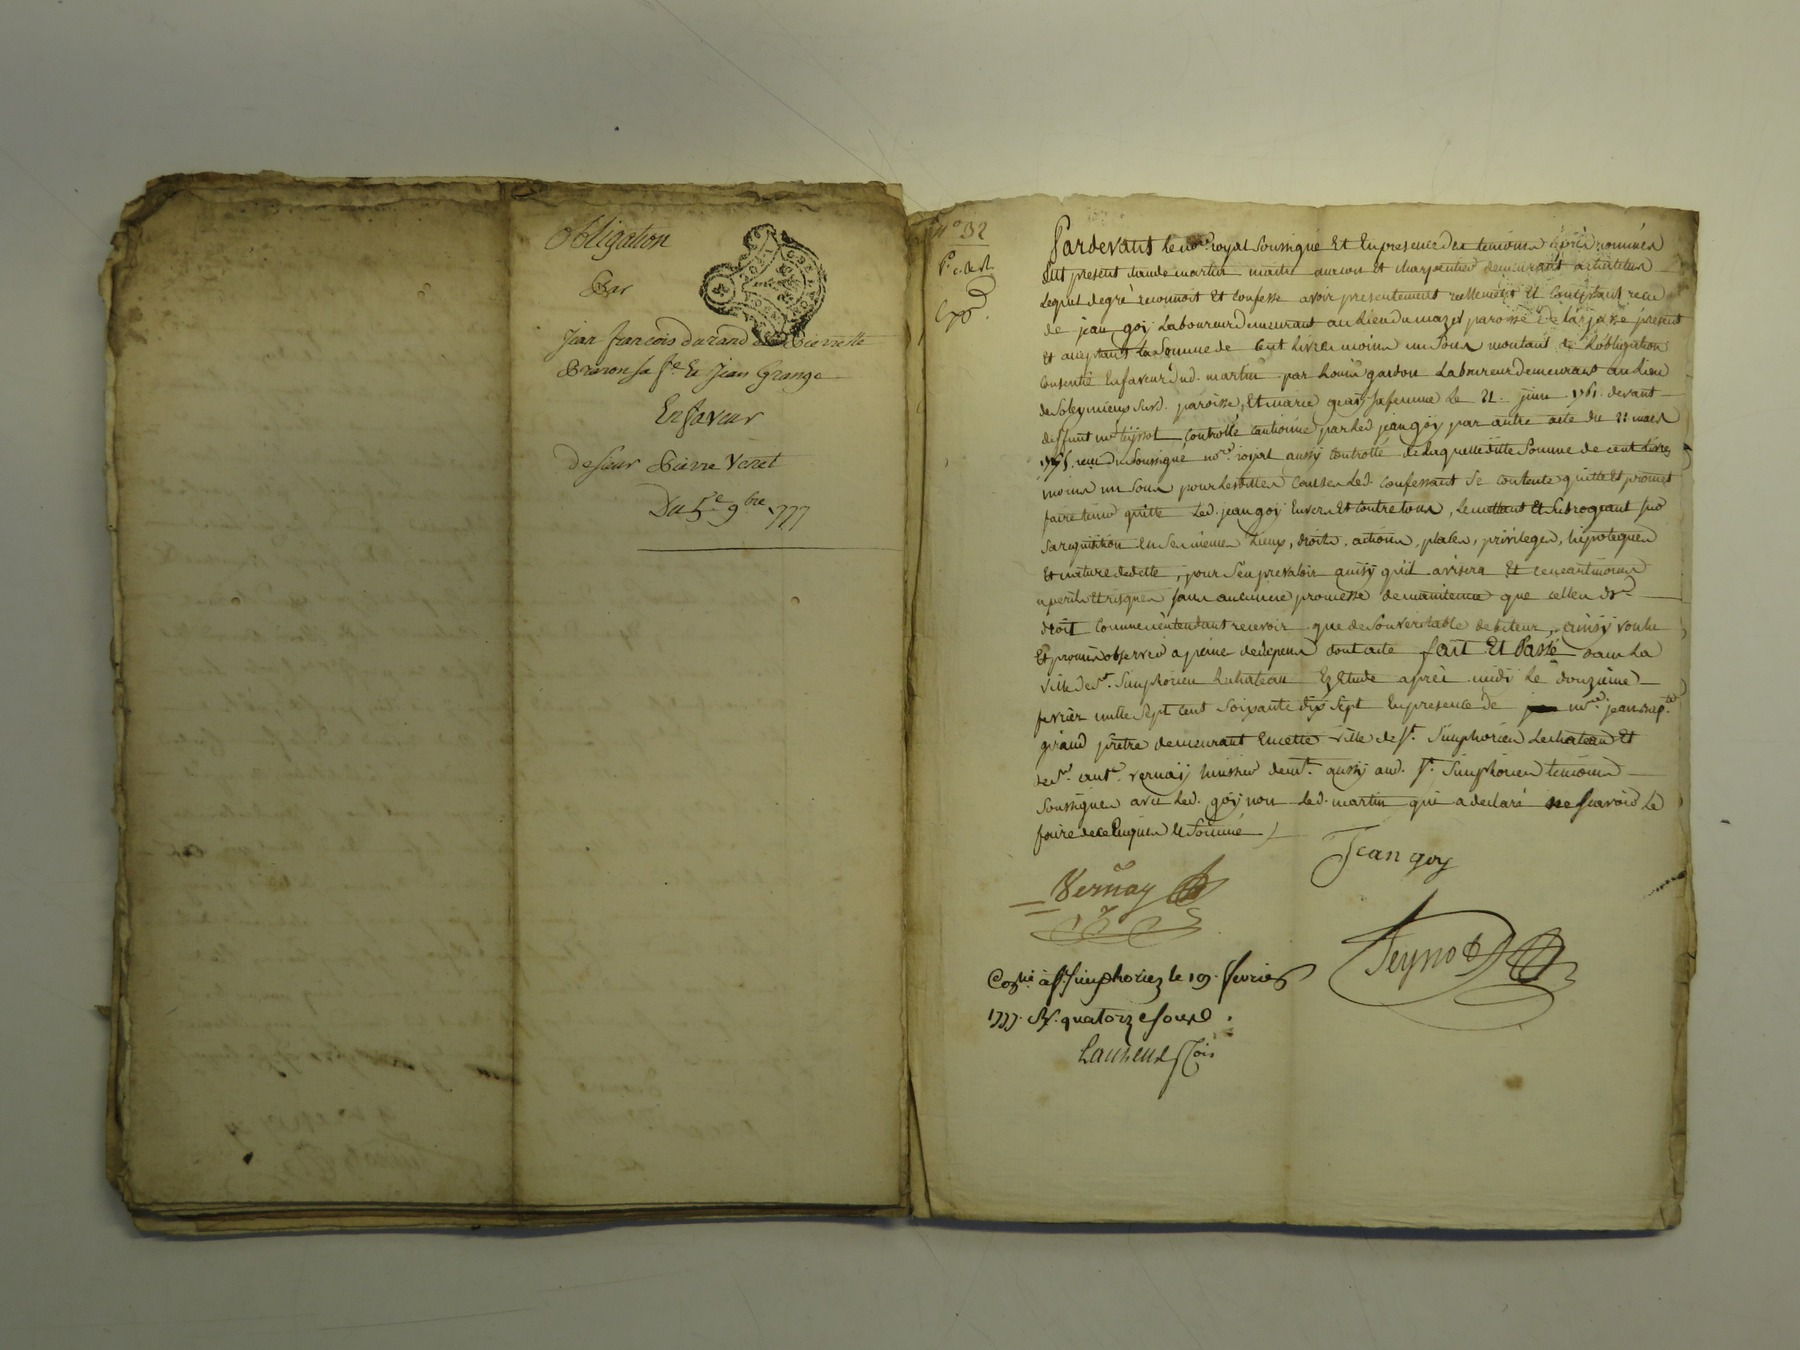 Obligation
Par
Jean francois Durand et Pierrette
Brairon sa fe. Et Jean Grange
En faveur
de sieur Pierre Veret
Du 5e 9bre 1777
n° 32
Pardevant le nore. royal soussigné Et En presence des temoins après nommés
fut present claude martin maitre masson Et charpentier demeurant
lequel de gré reconnoit Et confesse avoir presentement reellement Et comptant receu
de jean goy Laboureur demeurant au Lieu du mazet paroisse de present
Et acceptant La somme de cent Livres moins un sous montant de L'obligation
consentie En faveur dud. martin par Louis gardon Laboureur demeurant au Lieu
de Soleymieux susd. paroisse, Et marie goy sa femme Le 21. juin 1761. devant
deffunt me teynot controllé cautionné par Led. jean goy par autre acte du 21 mars
receu du soussigné nore. royal aussy controllé de Laquelle ditte somme de cent Livres
moins un sous pour Les dittes causes Led. confessant se contente quitte Et promet
faire tenir quitte Led. jean goy Envers Et contre tous, Le mettant Et subrogeant sur
sa requisition En ses mêmes Lieux, droits, actions, places, privileges, hipoteques
Et nature de dette, pour s'en prevaloir ainsy qu'il avisera Et ce neantmoins
a perils Et risques sans aucune promesse de maintenue que celles de
droit comme n'entendant recevoir que de son veritable debiteur, ainsy voulu
Et promis observer a peine de depens dont acte fait Et Passé dans La
ville de St. Simphorien Lechateau Ez Etude après midi Le douzieme
fevrier mille sept cent soixante dix sept En presence de mre. jean bapte.
giraud prêtre demeurant En cette ville de St. Simphorien Lechateau Et
de sr. ante. vernay huissier demt. aussy aud. St. Simphorien temoins
soussignés avec Led. goy non Led. martin qui a declaré ne sçavoir Le
faire de ce Enquis Et sommé
Jean goy
Vernay
Teynot
Conlé. à St. Simphorien le 19. fevrier
1777. R. quatorze sous
Laurent